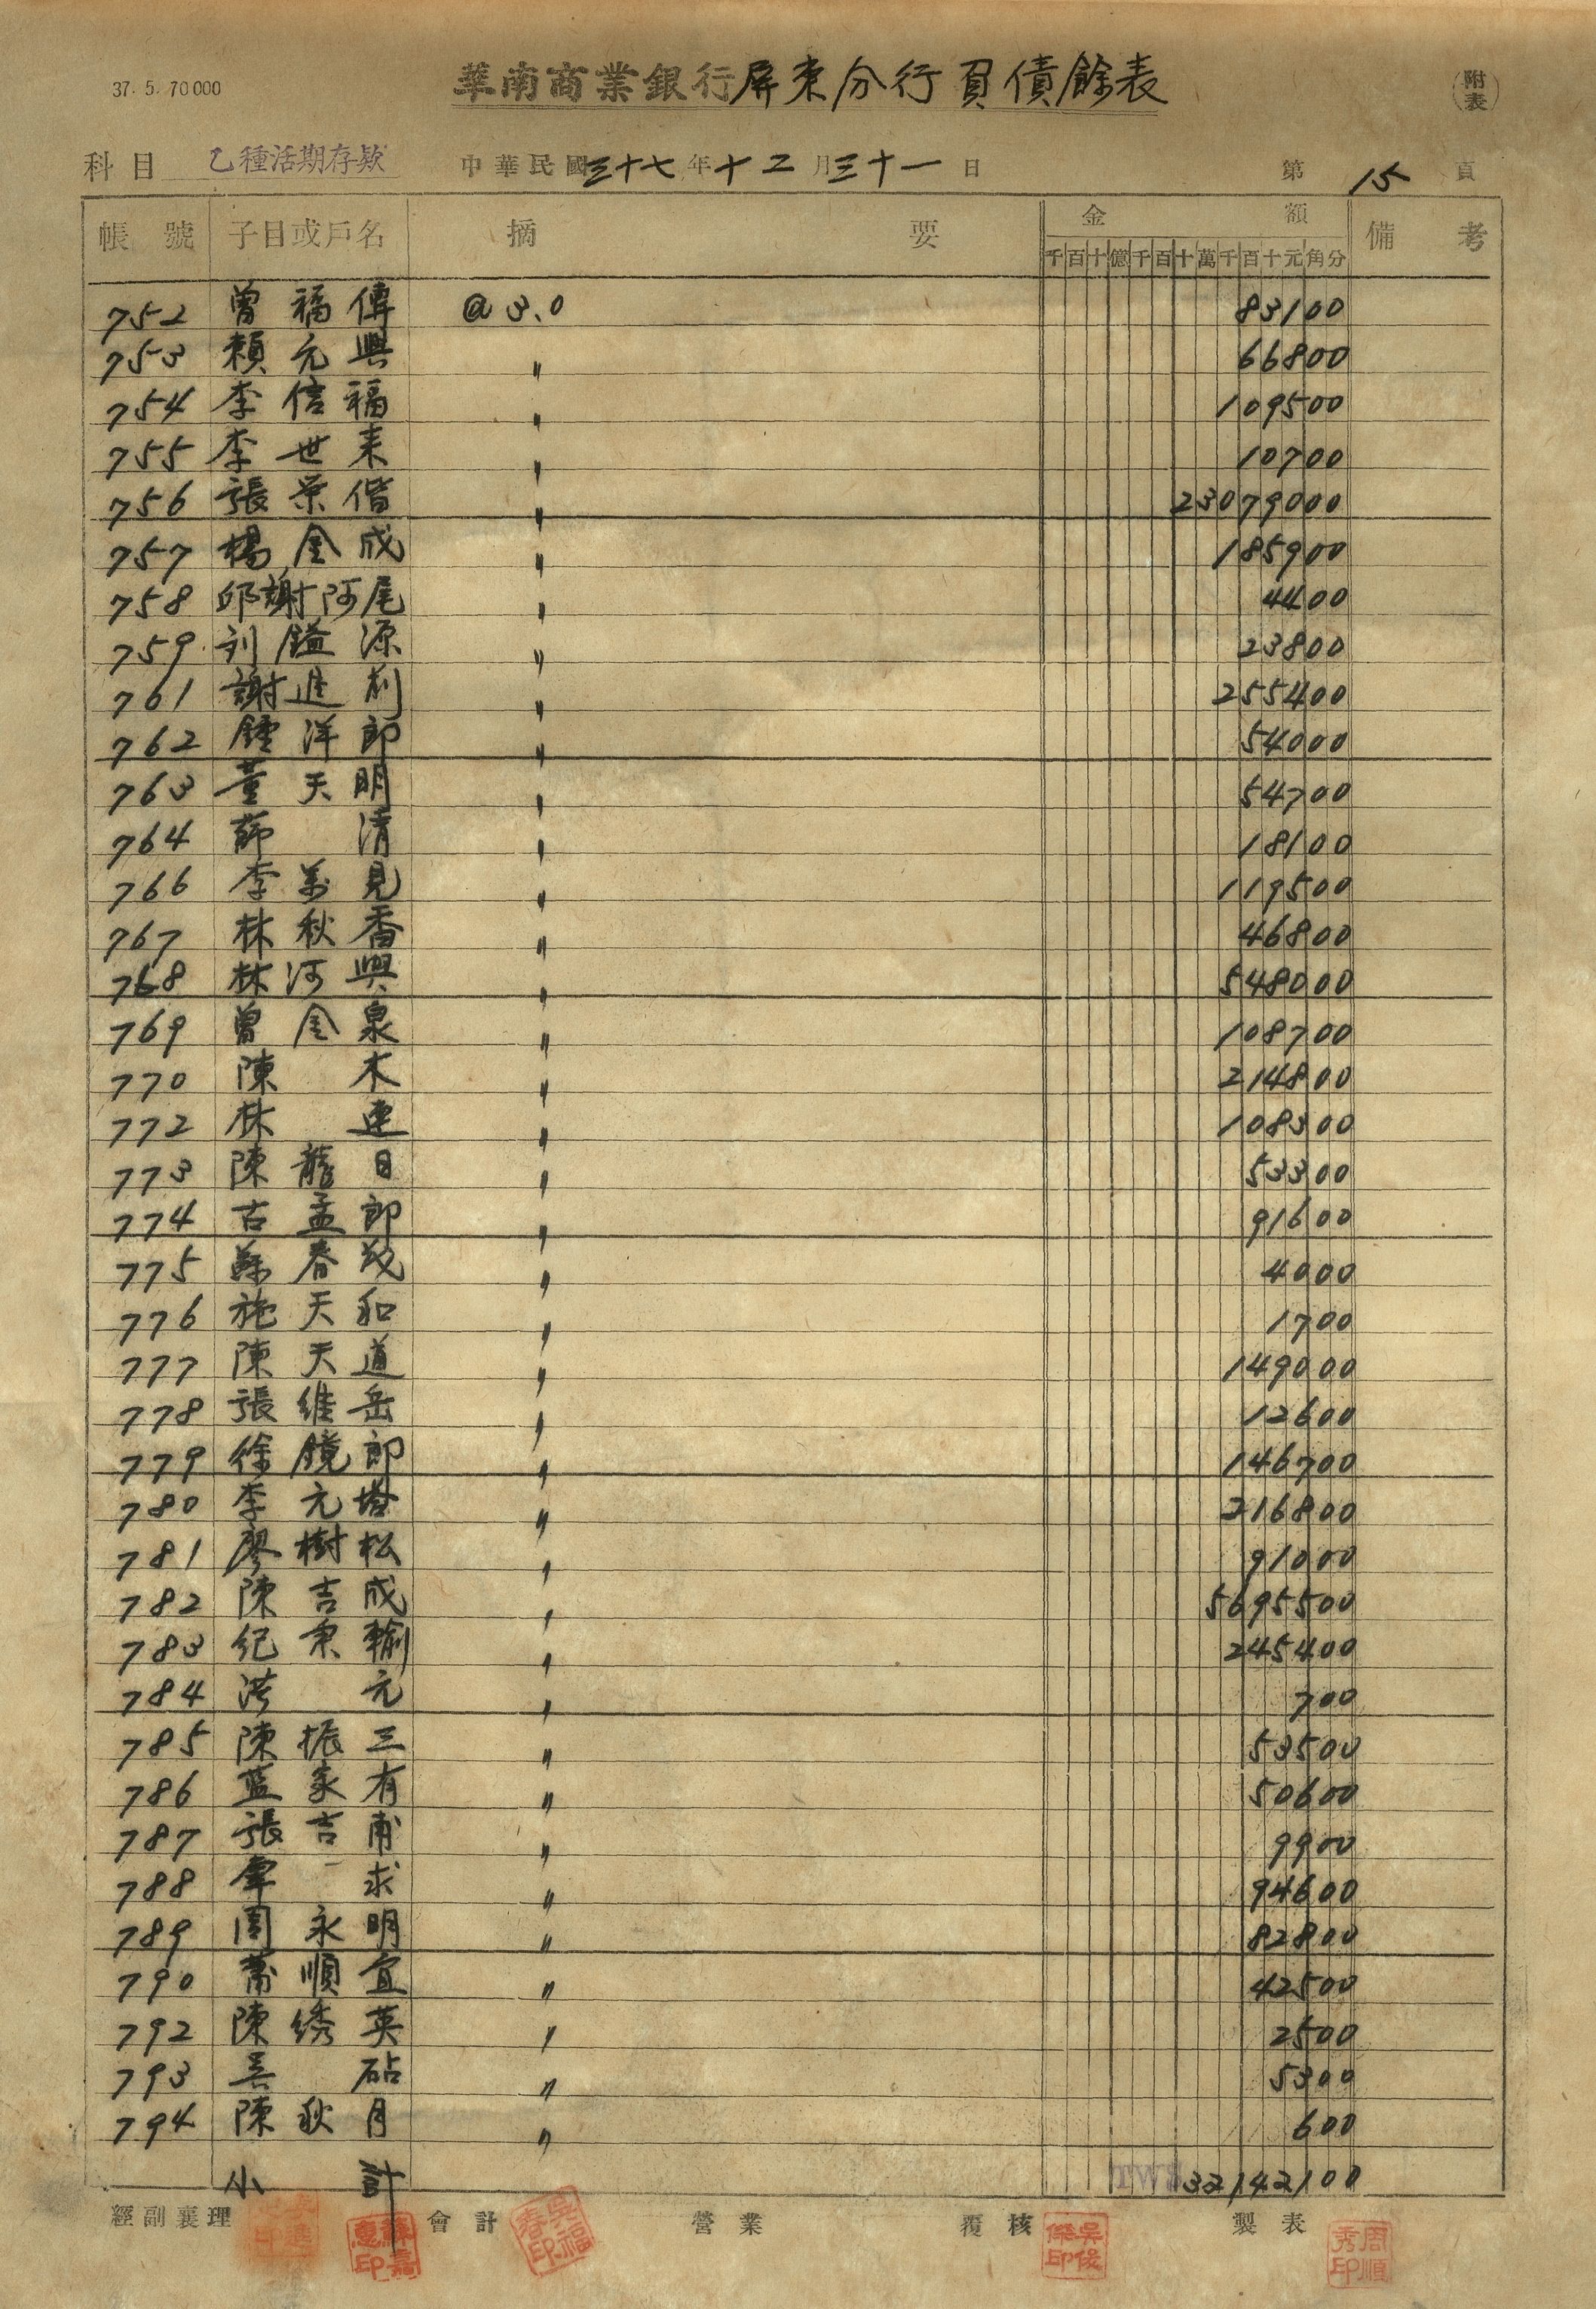 37. 5. 70000
華南商業銀行屏東分行負債餘表
(附表)
科目 乙種活期存款 中華民國三十七年十二月三十一日 第15頁
帳號 子目或戶名 摘要 金額 備考
千百十億千百十萬千百十元角分
752 曾福傳 @3.0 83100
753 賴元興 〃 66800
754 李信福 〃 109500
755 李世来 〃 10700
756 張榮偕 〃 23079000
757 楊金成 〃 185900
758 邱謝阿尾 〃 4400
759 刘鎰源 〃 23800
761 謝進利 〃 255400
762 鍾洋郎 〃 54000
763 董天明 〃 54700
764 薛清 〃 18100
766 李萬見 〃 119500
767 林秋香 〃 46800
768 林河興 〃 548000
769 曾金泉 〃 108700
770 陳木 〃 214800
772 林連 〃 108300
773 陳龍日 〃 53300
774 古孟郎 〃 91600
775 蘇春茂 〃 4000
776 施天和 〃 1700
777 陳天道 〃 149000
778 張維岳 〃 12600
779 徐鏡郎 〃 146700
780 李元塔 〃 216800
781 廖樹松 〃 91000
782 陳吉成 〃 5695500
783 紀秉輸 〃 245400
784 洪元 〃 700
785 陳振三 〃 53500
786 藍家有 〃 50600
787 張吉甫 〃 9900
788 求 〃 94600
789 周永明 〃 82800
790 蕭順宜 〃 42500
792 陳绣英 〃 2500
793 吴砧 〃 5300
794 陳秋月 〃 600
小計 TW$ 32142100
經副襄理 會計 營業 覆核 製表
蘇嘉惠印
吳福春印
吳俊傑印
周順秀印